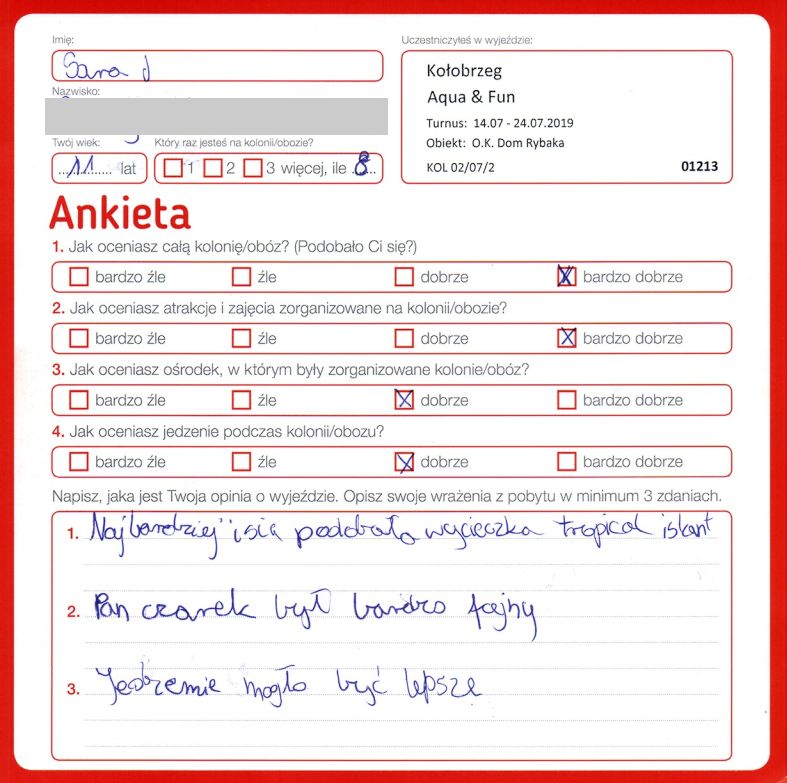 Imię:
Sara J
Uczestniczyłeś w wyjeździe:
Kołobrzeg
Aqua & Fun
Turnus: 14.07 - 24.07.2019
Obiekt: O.K. Dom Rybaka
KOL 02/07/2
01213
Nazwisko:
Twój wiek:
11 lat
Który raz jesteś na kolonii/obozie?
1 2 3 więcej, ile 8
Ankieta
1. Jak oceniasz całą kolonię/obóz? (Podobało Ci się?)
bardzo źle źle dobrze bardzo dobrze
2. Jak oceniasz atrakcje i zajęcia zorganizowane na kolonii/obozie?
bardzo źle źle dobrze bardzo dobrze
3. Jak oceniasz ośrodek, w którym były zorganizowane kolonie/obóz?
bardzo źle źle dobrze bardzo dobrze
4. Jak oceniasz jedzenie podczas kolonii/obozu?
bardzo źle źle dobrze bardzo dobrze
Napisz, jaka jest Twoja opinia o wyjeździe. Opisz swoje wrażenia z pobytu w minimum 3 zdaniach.
1. Najbardziej podobała wycieczka tropical
2. Pan czarek był bardzo fajny
3. mogło być lepsze